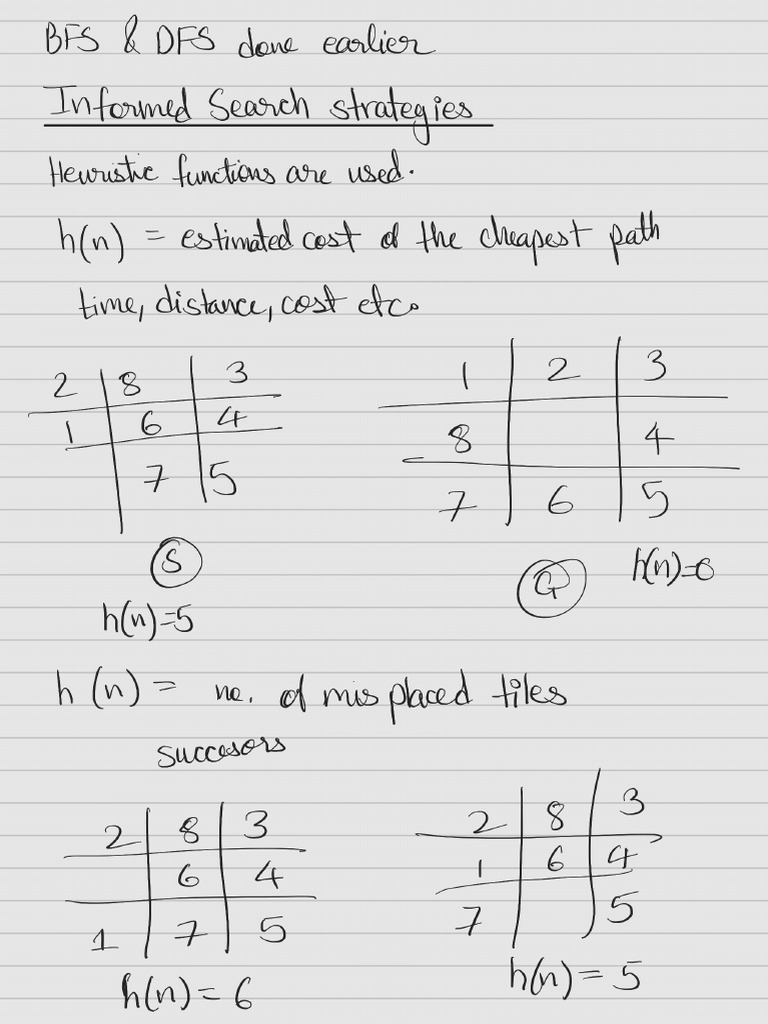 BFS & DFS done earlier
Informed Search strategies
Heuristic functions are used.
h(n) = estimated cost of the cheapest path
time, distance, cost etc.
2 8 3
1 6 4
7 5
S
h(n)=5
1 2 3
8 4
7 6 5
G
h(n)=0
h(n) = no. of misplaced tiles
succesors
2 8 3
6 4
1 7 5
h(n) = 6
2 8 3
1 6 4
7 5
h(n) = 5